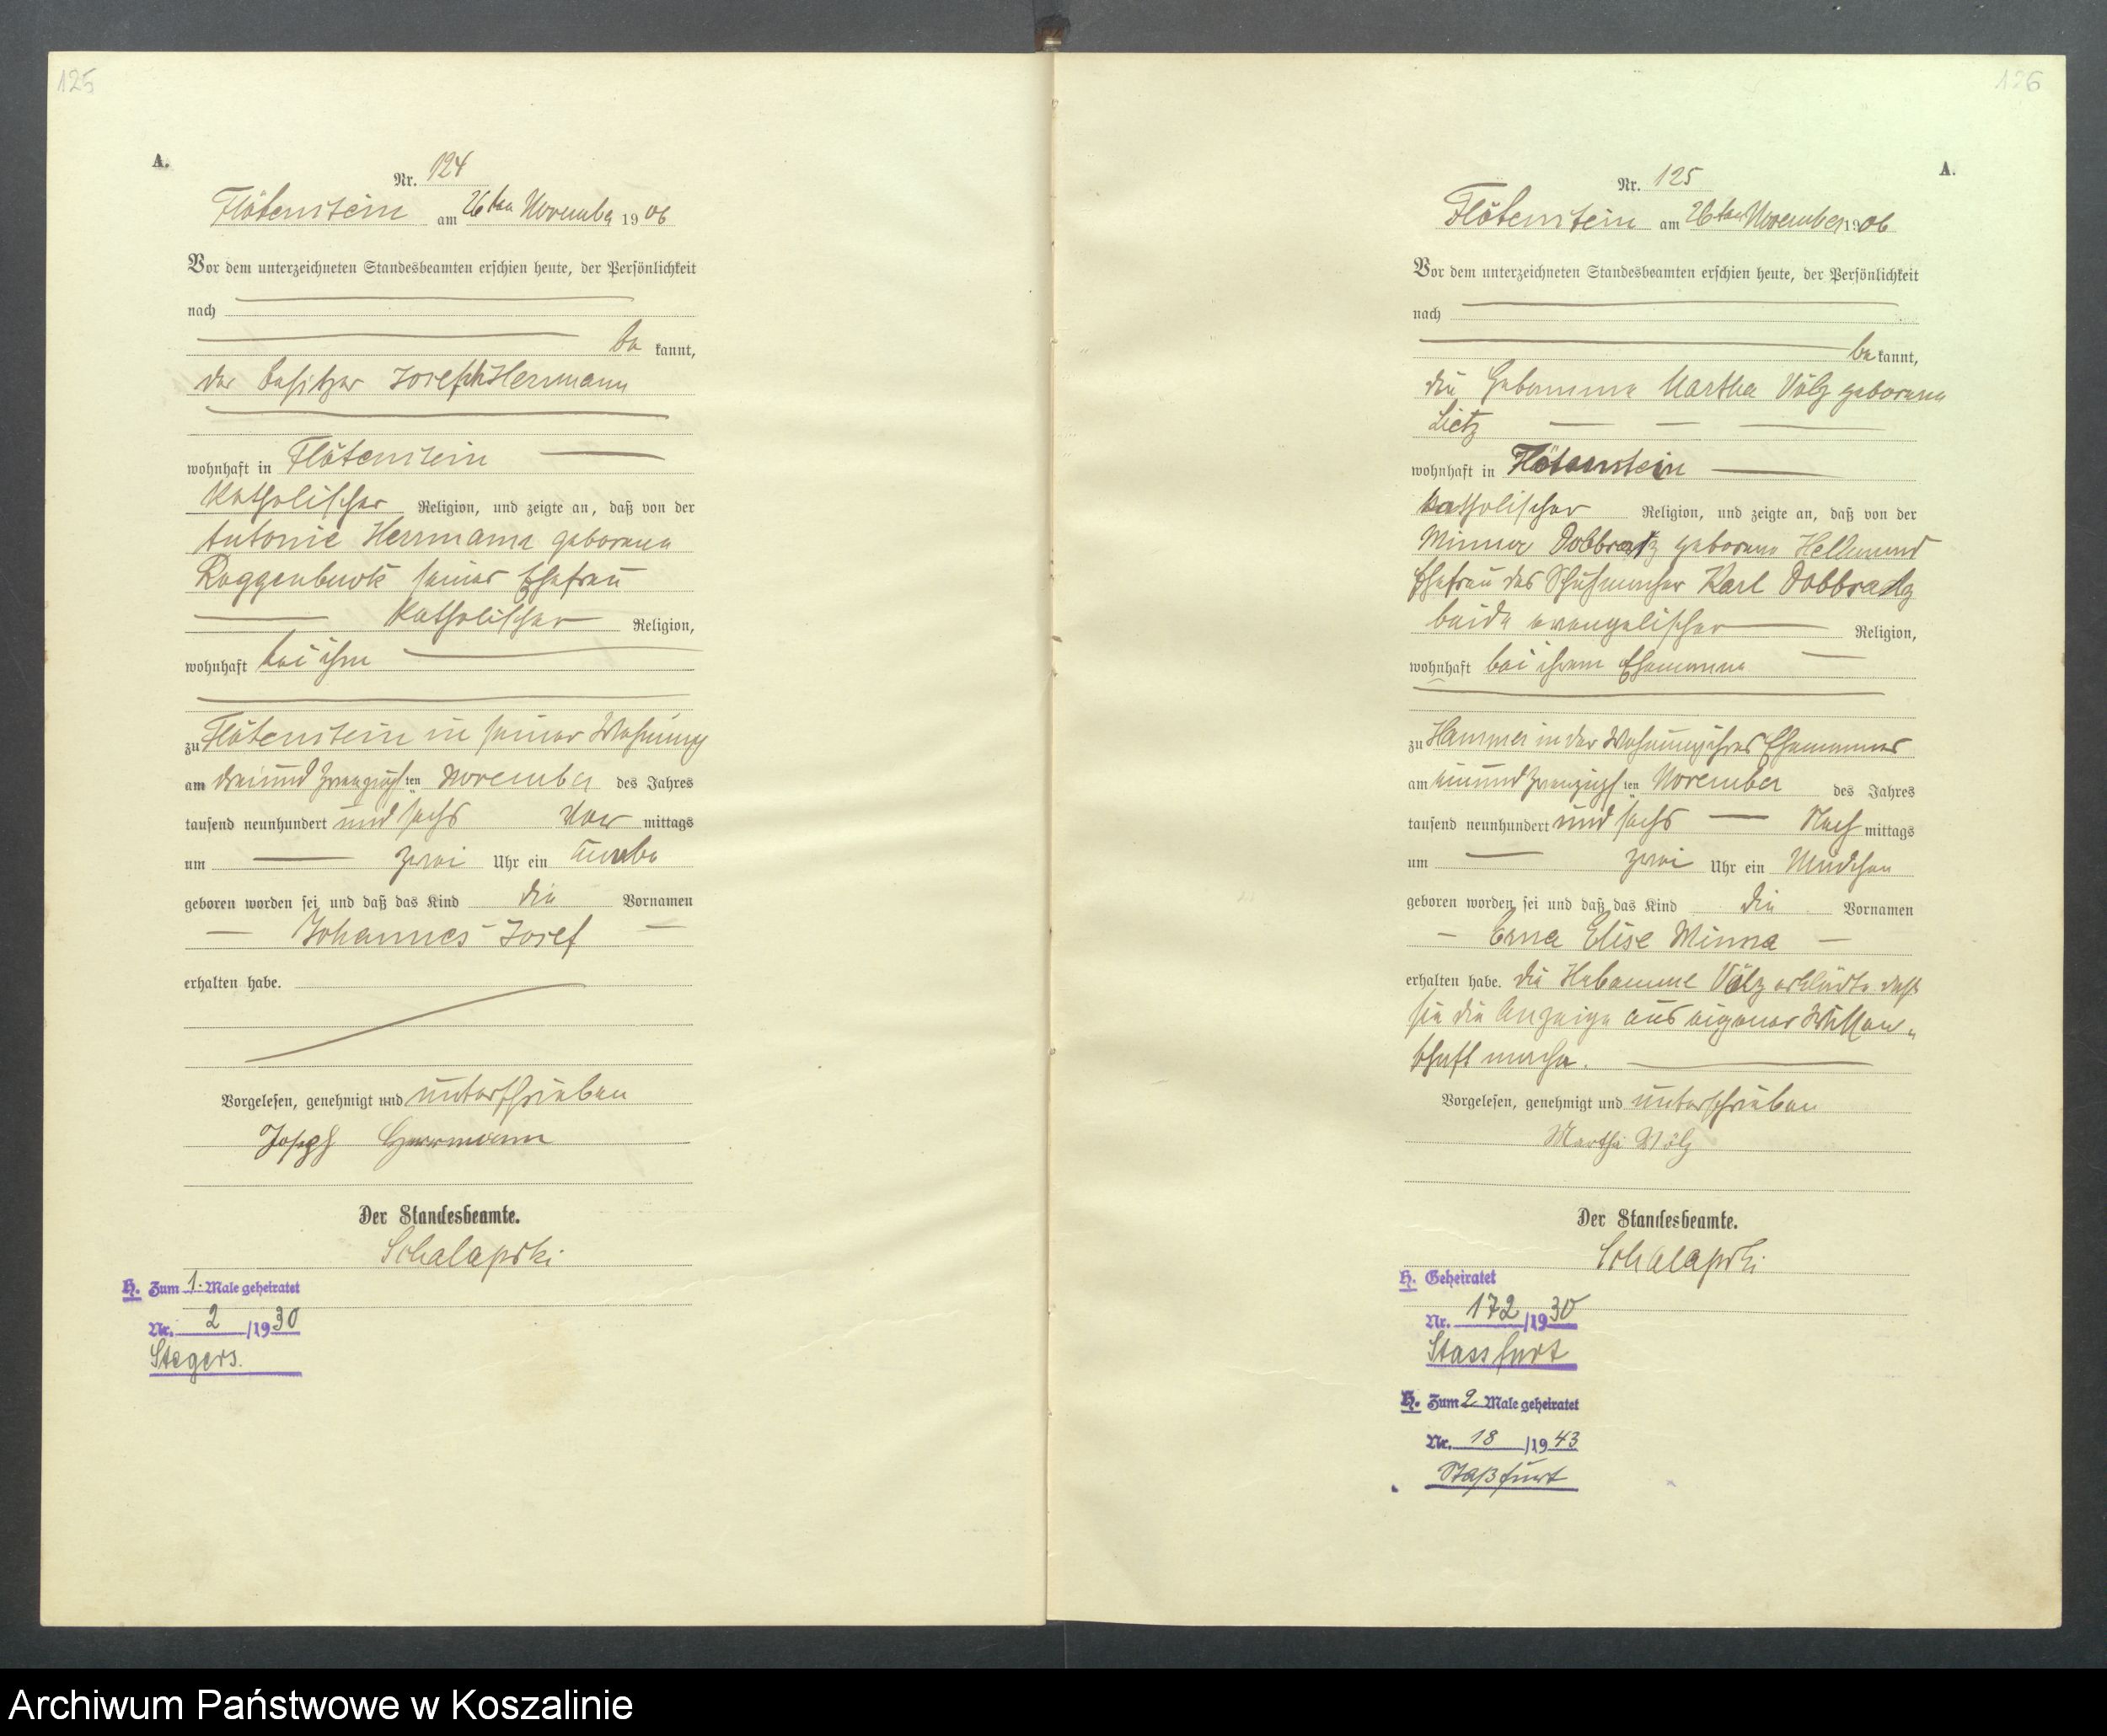 125
A.
Nr. 124
Flötenstein am 26ten November 1906
Vor dem unterzeichneten Standesbeamten erschien heute, der Persönlichkeit
nach
be kannt,
der Besitzer Joseph Herrmann
wohnhaft in Flötenstein
katholischer Religion, und zeigte an, daß von der
Antonie Herrmann geborene
Roggenbuck seiner Ehefrau
katholischer Religion,
wohnhaft bei ihm
zu Flötenstein in seiner Wohnung
am dreiundzwanzigsten November des Jahres
tausend neunhundert und sechs Vor mittags
um zwei Uhr ein Knabe
geboren worden sei und daß das Kind die Vornamen
Johannes Josef
erhalten habe.
Vorgelesen, genehmigt und unterschrieben
Joseph Herrmann
Der Standesbeamte.
Schalapski
H. Zum 1. Male geheiratet
Nr. 2 /1930
Stegers.
126
A.
Nr. 125
Flötenstein am 26ten November 1906
Vor dem unterzeichneten Standesbeamten erschien heute, der Persönlichkeit
nach
be kannt,
die Hebamme Martha Völz geborene
Lietz
wohnhaft in Flötenstein
katholischer Religion, und zeigte an, daß von der
Minna Dobbratz geborene Hellmund
Ehefrau des Schuhmacher Karl Dobbratz
beide evangelischer Religion,
wohnhaft bei ihrem Ehemanne
zu Hammer in der Wohnung ihres Ehemannes
am einundzwanzigsten November des Jahres
tausend neunhundert und sechs Nach mittags
um zwei Uhr ein Mädchen
geboren worden sei und daß das Kind die Vornamen
Erna Elise Minna
erhalten habe. Die Hebamme Völz erklärte daß
sie die Anzeige aus eigener Wissen-
schaft mache.
Vorgelesen, genehmigt und unterschrieben
Martha Völz
Der Standesbeamte.
Schalapski
H. Geheiratet
Nr. 172 /1930
Stassfurt
H. Zum 2. Male geheiratet
Nr. 18 /1943
Staßfurt
Archiwum Państwowe w Koszalinie